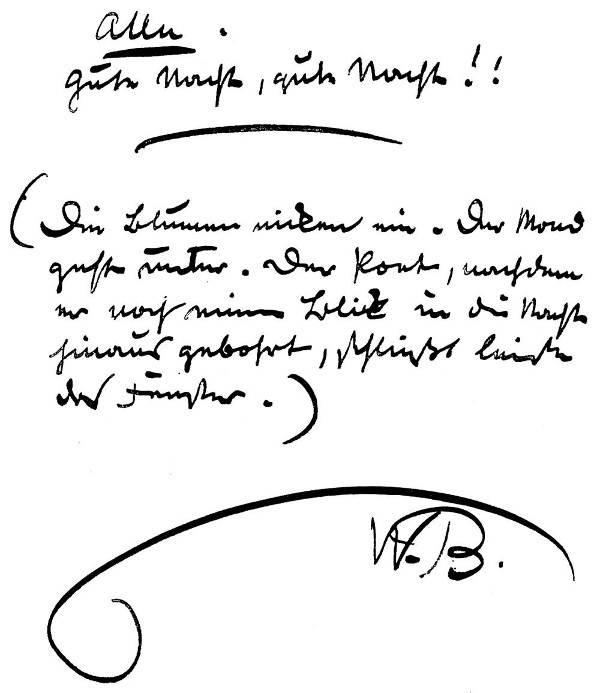 Alle .
gute Nacht, gute Nacht!!
(Die Blumen nicken ein. Der Mond
geht unter. Der Poet, nachdem
er noch einen Blick in die Nacht
hinaus gebohrt, schließt leise
das Fenster.)
W.B.